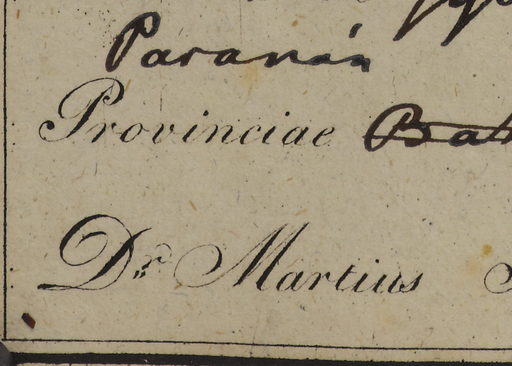 Paranán
Provinciae
Dr. Martius